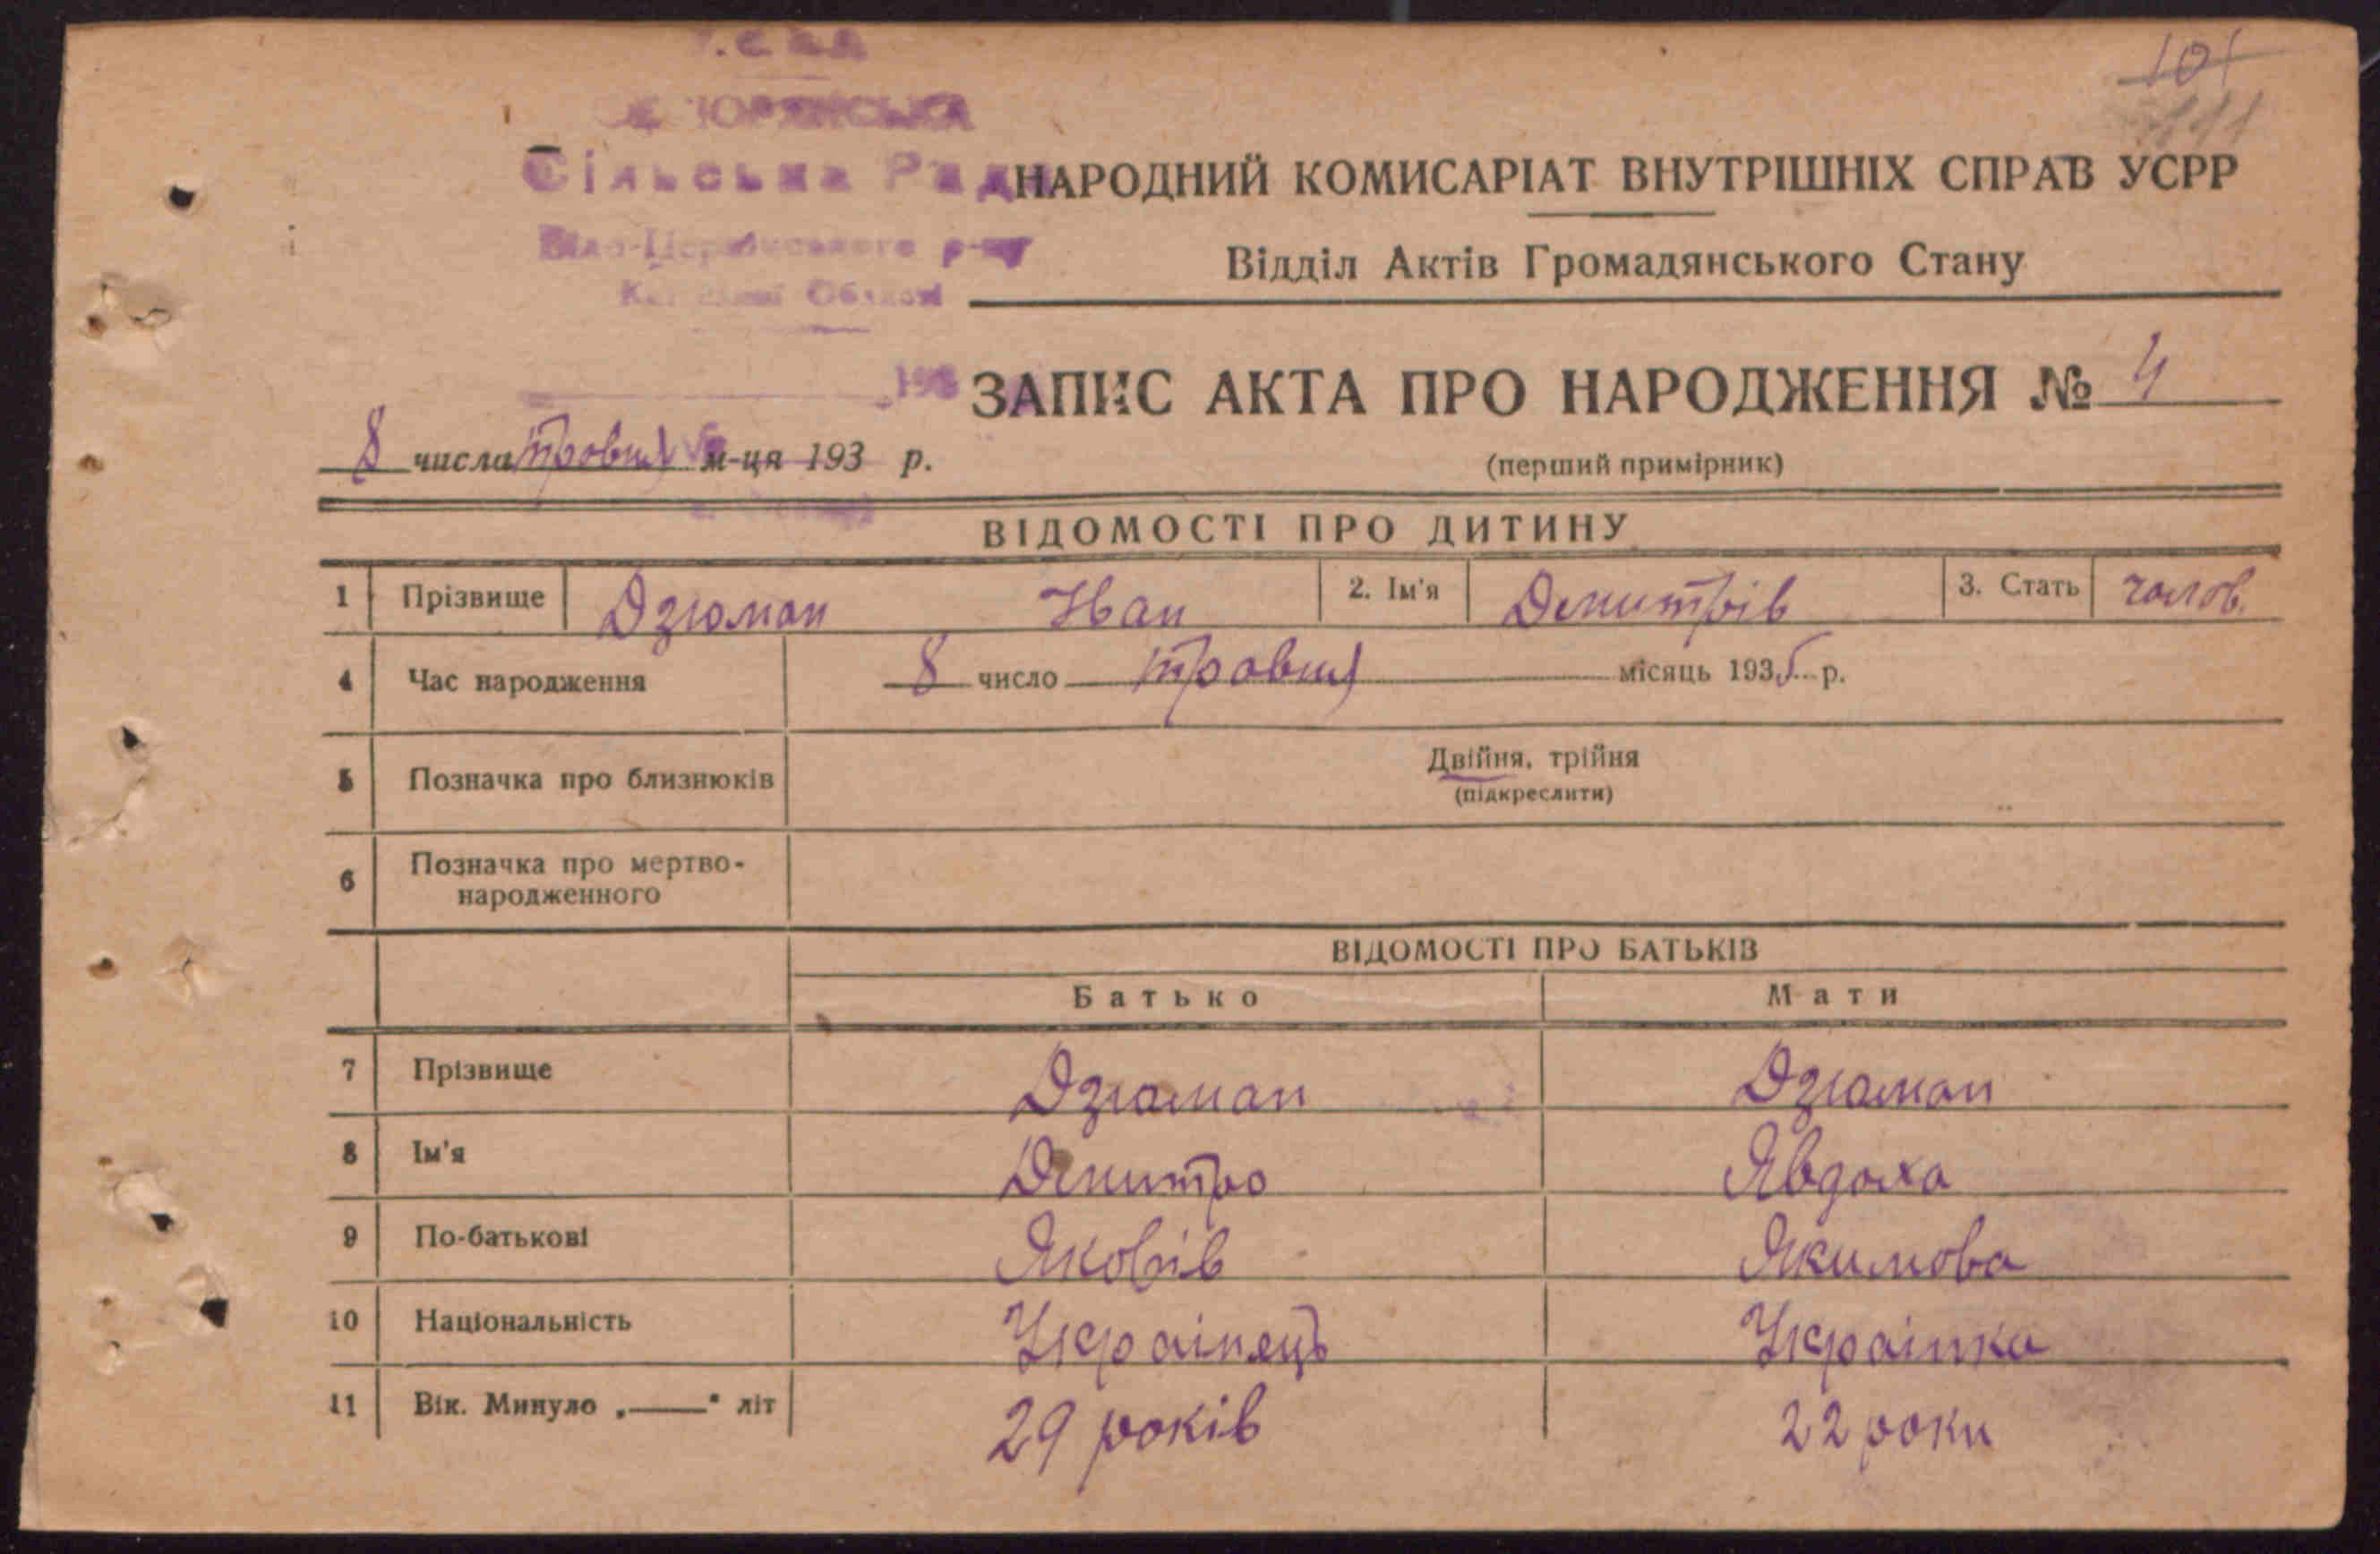 101
111
Сільська Рада
Біло-Церківського р-ну
Київської Області
НАРОДНИЙ КОМИСАРІАТ ВНУТРІШНІХ СПРАВ УСРР
Відділ Актів Громадянського Стану
ЗАПИС АКТА ПРО НАРОДЖЕННЯ № 4
8 числа травня м-ця 193 р.
(перший примірник)
ВІДОМОСТІ ПРО ДИТИНУ
1 Прізвище Дзюман Іван 2. Ім'я Демитрів 3. Стать чолов.
4 Час народження 8 число травня місяць 1935 р.
5 Позначка про близнюків Двійня, трійня
(підкреслити)
6 Позначка про мертво-
народженного
ВІДОМОСТІ ПРО БАТЬКІВ
Батько Мати
7 Прізвище Дзюман Дзюман
8 Ім'я Демитро Явдоха
9 По-батькові Яковів Якимова
10 Національність Українець Українка
11 Вік. Минуло „——" літ 29 років 22 роки